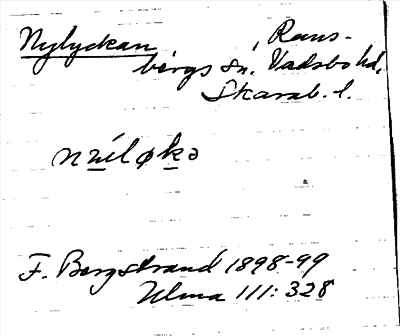 Nylyckan, Rans-
bergs sn. Vadsbo hd,
Skarab. l.
nŭ́løkə
F. Bergstrand 1898-99
Ulma 111: 328